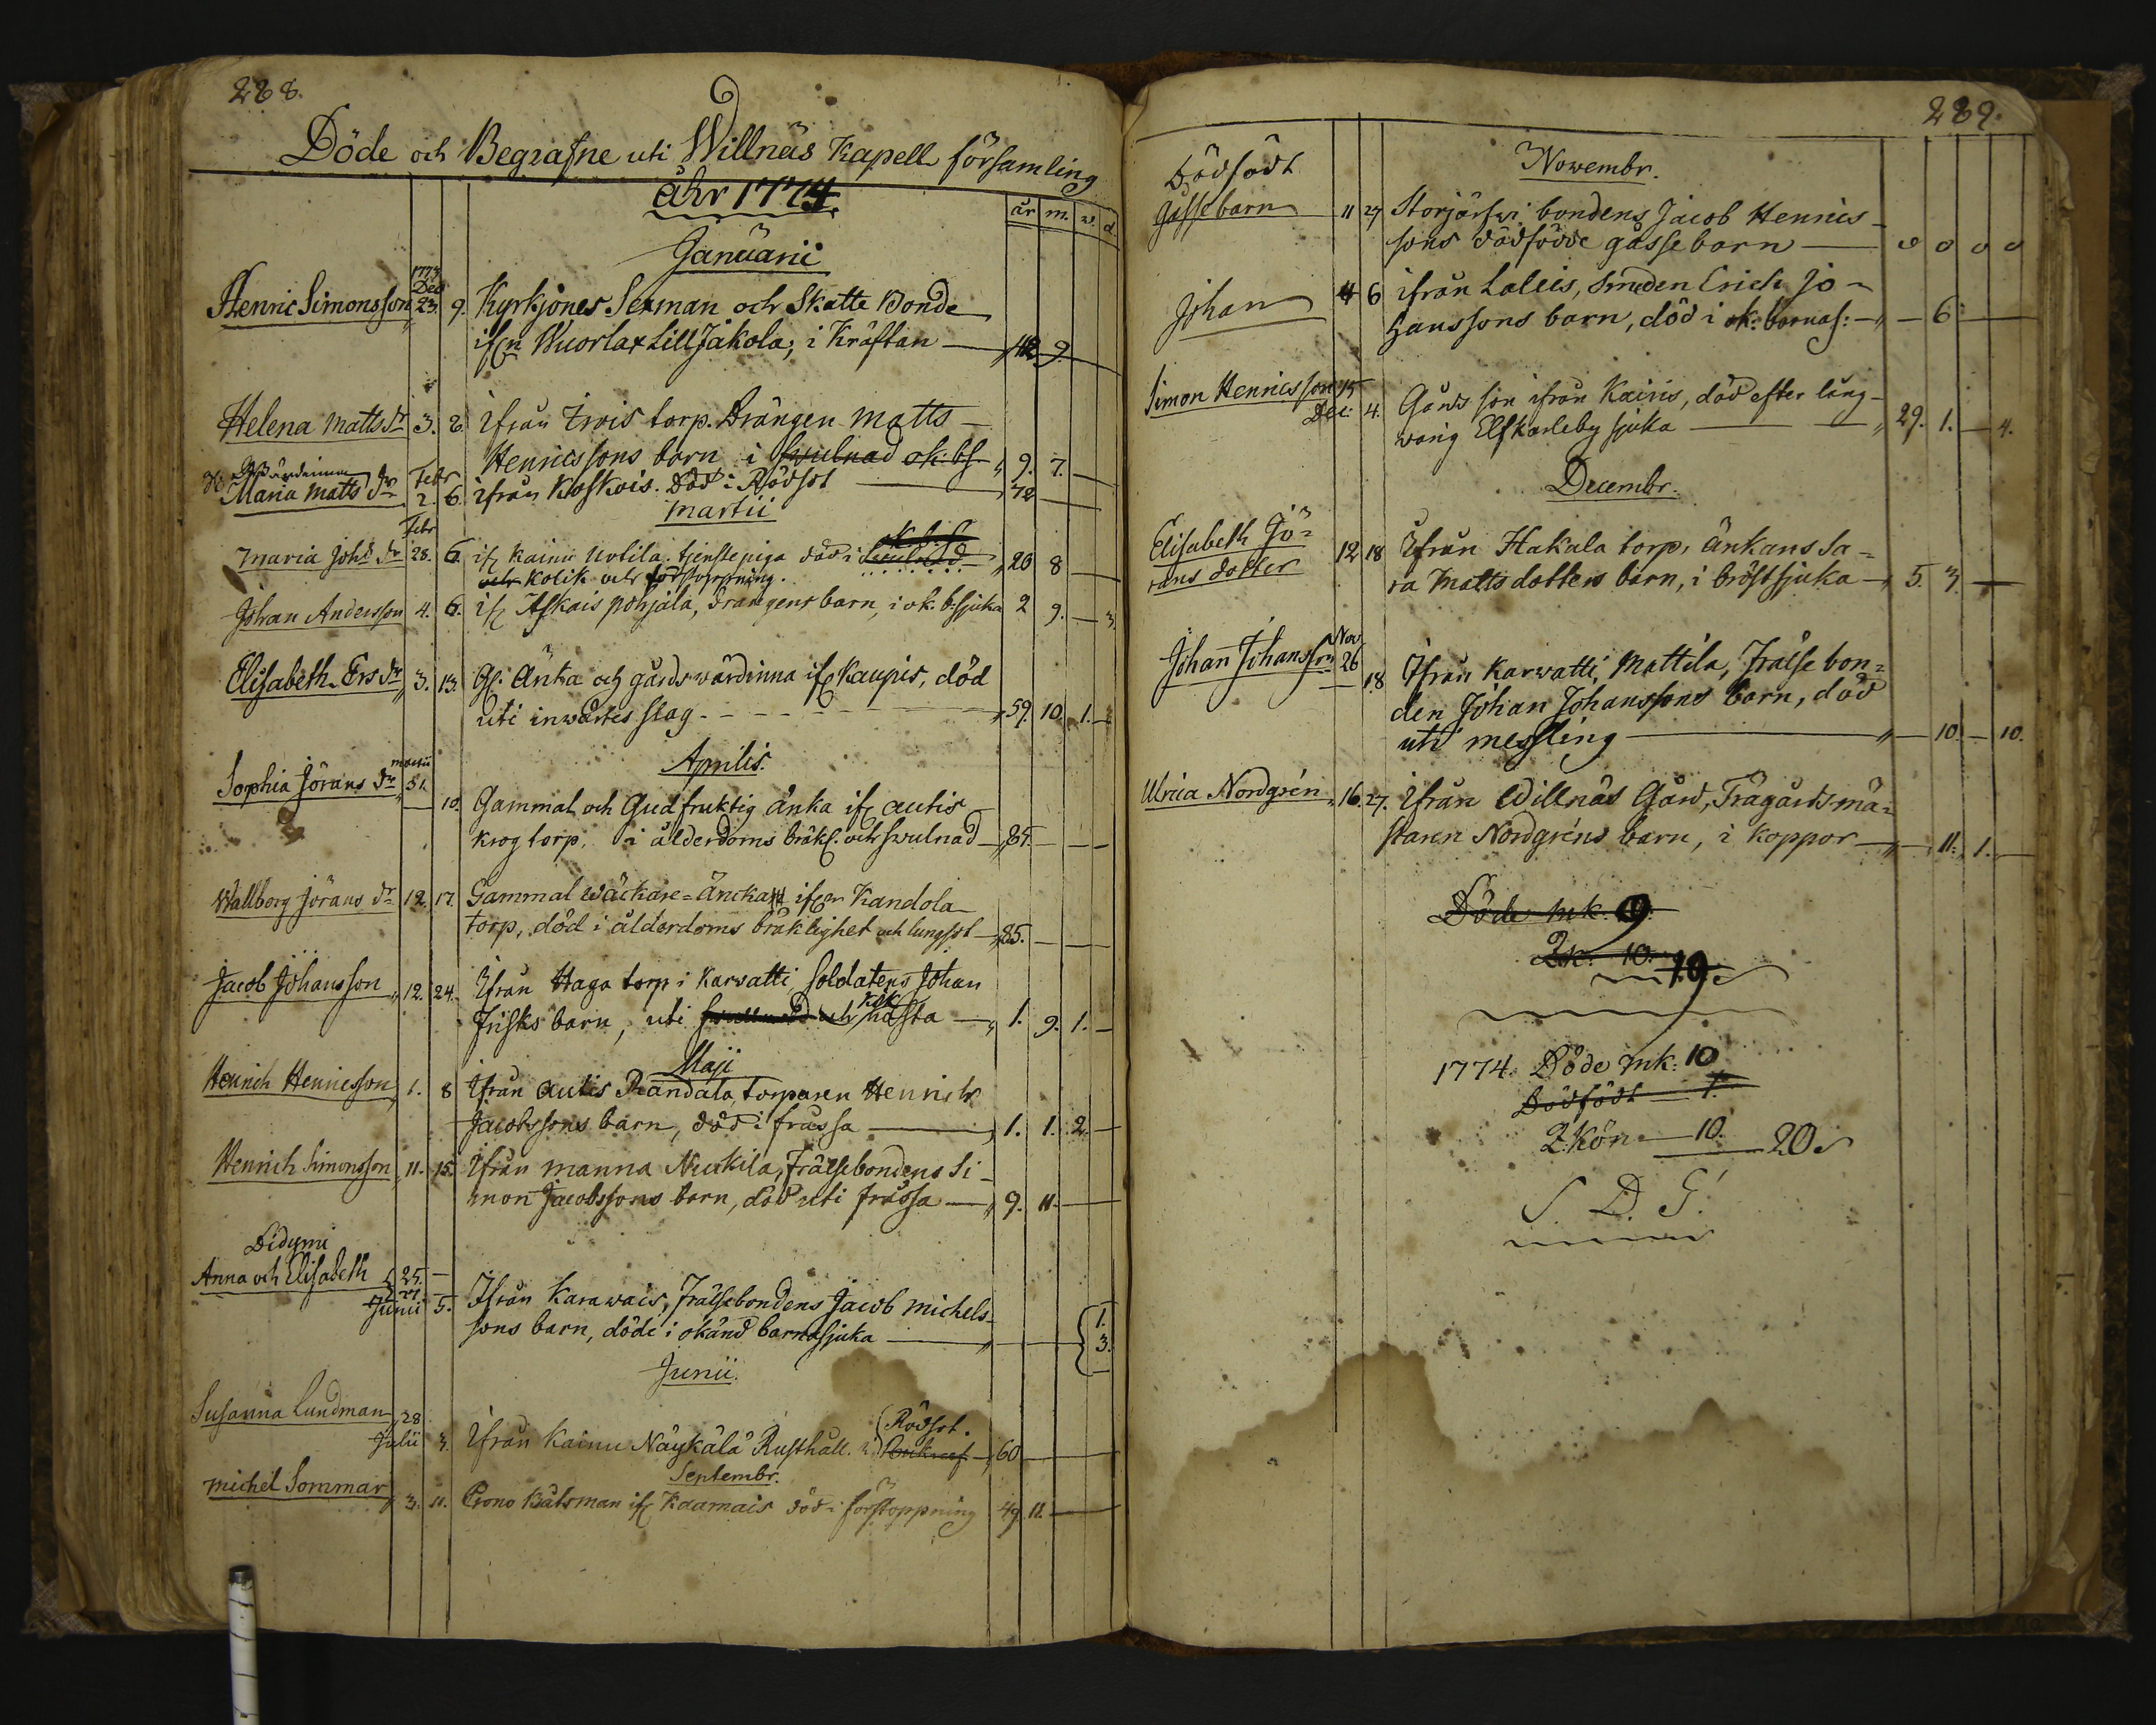 288.
Döde och Begrafne uti Willnäs Kapell församling
åhr 1774.
år m. v. d.
Januarii
1773
Dec
Henric Simonsson 23. 9. Kyrkjones Sexman och Skatte Bonde
ifrn Wuorlax Lill Jakola; i Kräftan 42 9.
Helena Matts dr 3. 2 ifrån Irois torp. Drängen Matts
Henricssons barn i swulnad ok: bs. 9. 7.
Wärdinna Febr
Maria Matts dr 2. 6. ifrån Koskois. död i Rödsot 72
Martii
Febr
Maria Joh. dr 28. 6. if Kainu Uotila. tjenstepiga död i 20 8
och Kolik och förstoppning.
Johan Andersson 4. 6. if Askais pohjala, drängens barn, i ok. b. sjuka 2 9. 3.
Elisabeth Ers dr 3. 13. Gl. Änka och gårds wärdinna if Kaupis, död
uti inwärtes slag 59. 10. 1.
Aprilis.
Martii
Sophia Jörans dr 31. 10. Gammal och Gudfruktig änka if Autis
krog torp. i ålderdoms bräkl. och swulnad 85.
Wallborg Jörans dr 12. 17. Gammal Wäckare-Äncka ifrn Kandola
torp, död i ålderdoms bräklighet och lungsot 85.
Jacob Johansson 12. 24. Ifrån Haga torp i Karvatti, Soldatens Johan
Frisks barn, uti swullnad och kik hosta 1. 9. 1.
Maji
Henrich Henricsson 1. 8 Ifrån Autis Randala, torparen Henrich
Jacobssons barn, död i frassa 1. 1. 2.
Henrich Simonsson 11. 15. Ifrån Manna Nuckila, Frälsebondens Si-
mon Jacobssons barn, död uti frassa 9. 11.
Didymi
Anna och Elisabeth 25.
27.
Junii 5. Ifrån Karawais, Frälsebondens Jacob Michels-
sons barn, döde i okänd barnasjuka 1.
3.
Junii.
Susanna Lundman 28
Julii 3. Ifrån Kainu Näykälä Rusthåll. i Rödsot. 60
Septembr.
Michel Sommar 3. 11. Crono Båtsman if Kaamais död i förstoppning 49 11.
289.
Nowembr.
Dödfödt
gåssebarn 11 27 Storjärfwi bondens Jacob Henrics-
sons dödfödde gåssebarn 0 0 0 0
Johan 4 6 ifrån Laleis, Smeden Erich Jo-
hanssons barn, död i ok: barnas: 6
Simon Henricsson 15
Dec: 4. Gårds son ifrån Kairis, död efter lång-
warig Elfkarleby sjuka 29. 1. 4.
Decembr.
Elisabeth Jö-
rans dotter 12 18 Ifrån Hakala torp, änkans Sa-
ra Mattsdotters barn, i bröstsjuka 5. 3.
Nov
Johan Johansson 26
18 Ifrån Karwatti, Mattila, Frälsebon-
den Johan Johanssons barn, död
uti messling 10. 10.
Ulrica Nordgrén 16. 27. Ifrån Willnäs Gård, Trägårdsmä-
staren Nordgréns barn, i koppor 11. 1.
Döde mk. 9.
2k: 10.
19
1774. Döde mk: 10
Dödfödt 1.
2. Kön 10. 20
S. D. G.